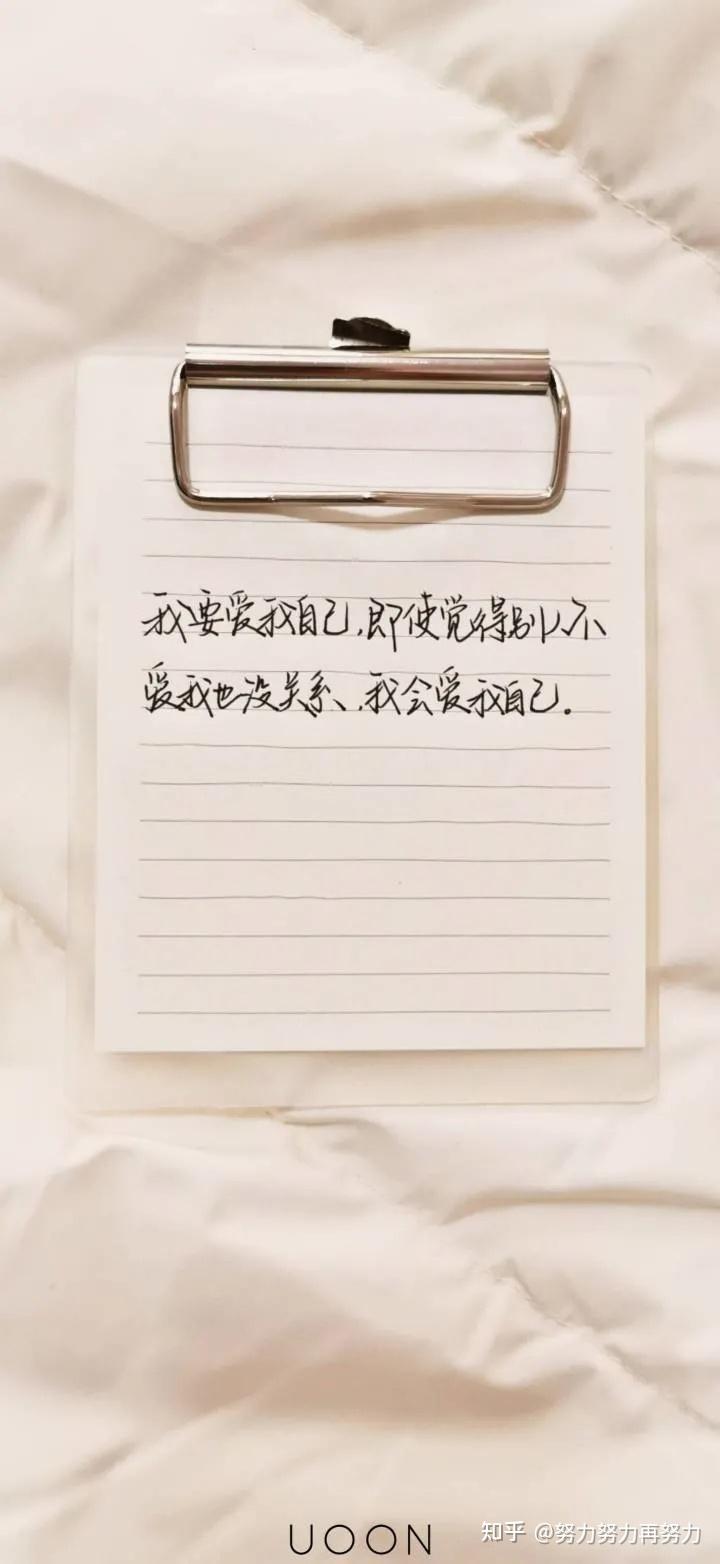 我要爱我自己,即使觉得别人不
爱我也没关系、,我会爱我自己。
UOON
知乎 @努力努力再努力